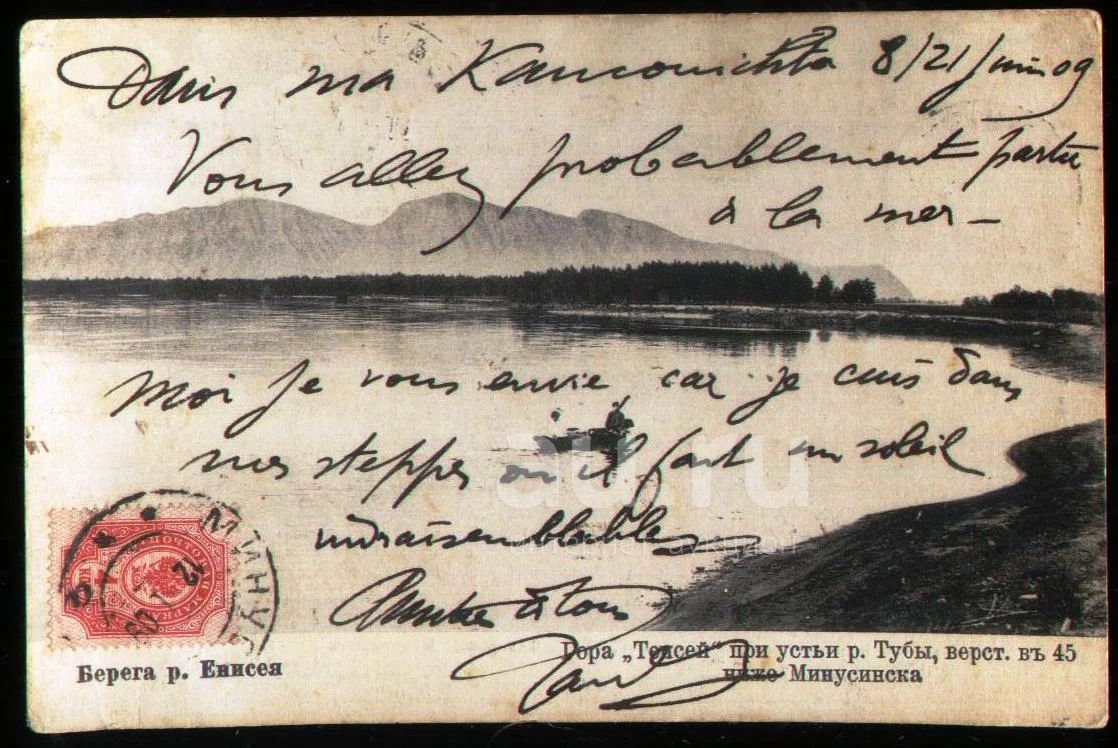 Dans ma 8/21 Juin 09
Vous allez probablement partir
à la mer –
Moi je vous envie car je cuis dans
mes steppes où il fait un soleil
invraisemblable
à tous
Берега р. Енисея
Гора „Тепсей" при устьи р. Тубы, верст. въ 45
ниже Минусинска
МИНУС
au.ru